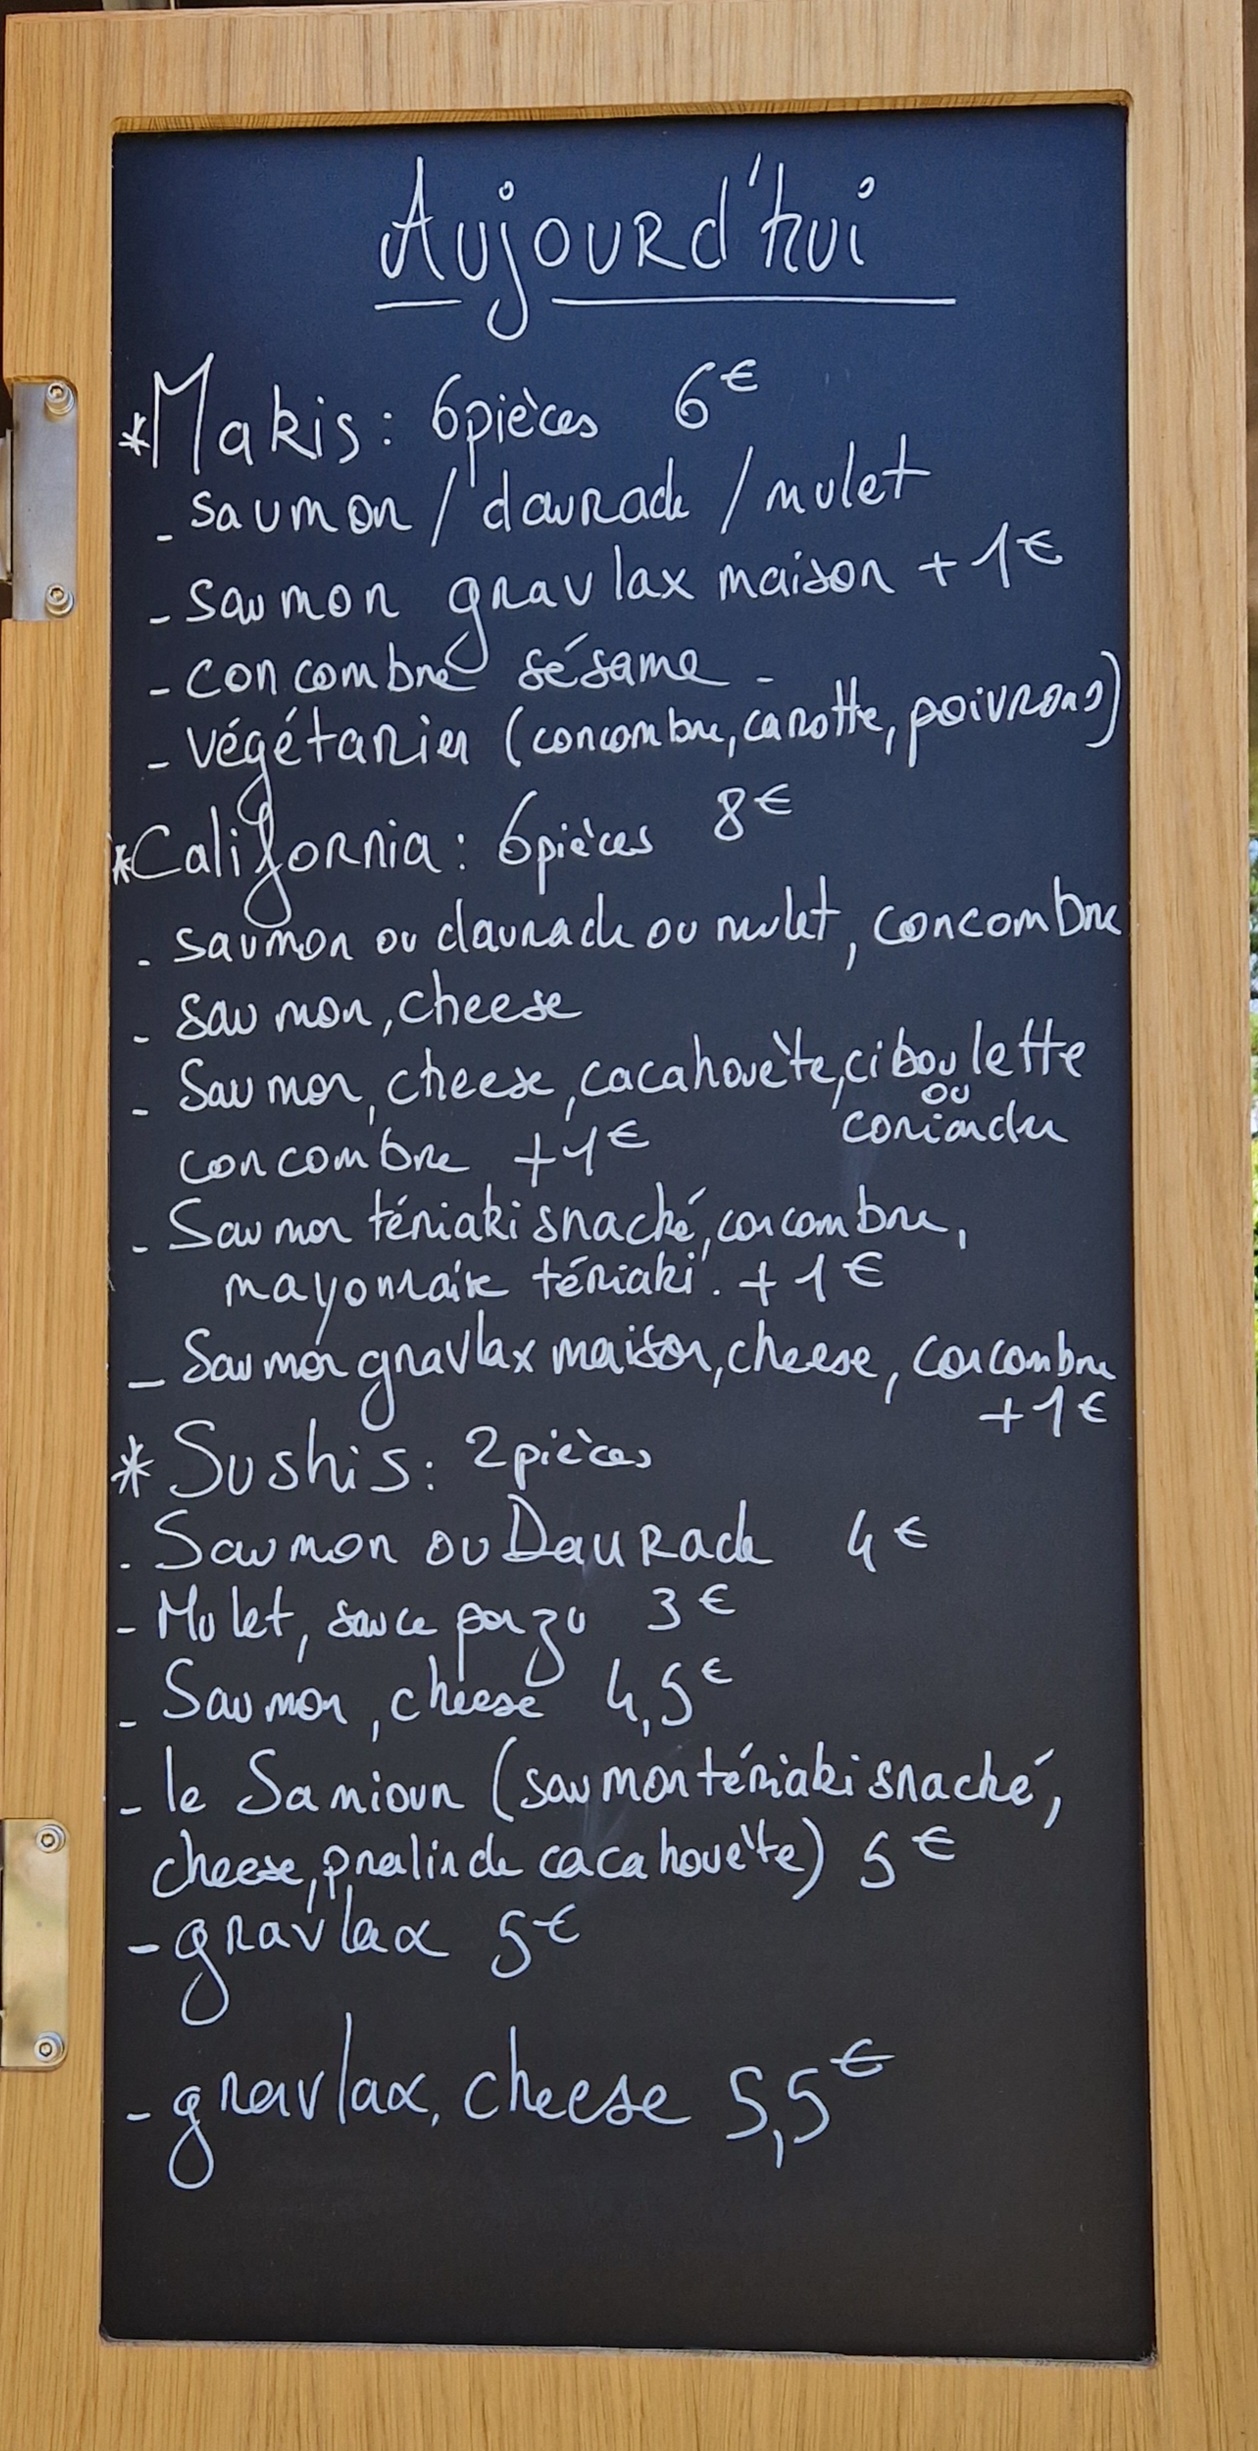 Aujourd'hui
*Makis : 6 pièces 6€
- saumon / daurade / mulet
- saumon gravlax maison + 1€
- concombre sésame -
- végétarien (concombre, carotte, poivrons)
*California : 6 pièces 8€
- saumon ou daurade ou mulet, concombre
- saumon, cheese
- Saumon, cheese, cacahouète, ciboulette
ou
coriandre
concombre +1€
- Saumon tériaki snacké, concombre,
mayonnaise tériaki. + 1€
- Saumon gravlax maison, cheese, concombre
+1€
* Sushis : 2 pièces
- Saumon ou Daurade 4€
- Mulet, sauce ponzu 3€
- Saumon, cheese 4,5€
- le Samioun (saumon tériaki snacké,
cheese, pralin de cacahouète) 5€
- gravlax 5€
- gravlax, cheese 5,5€